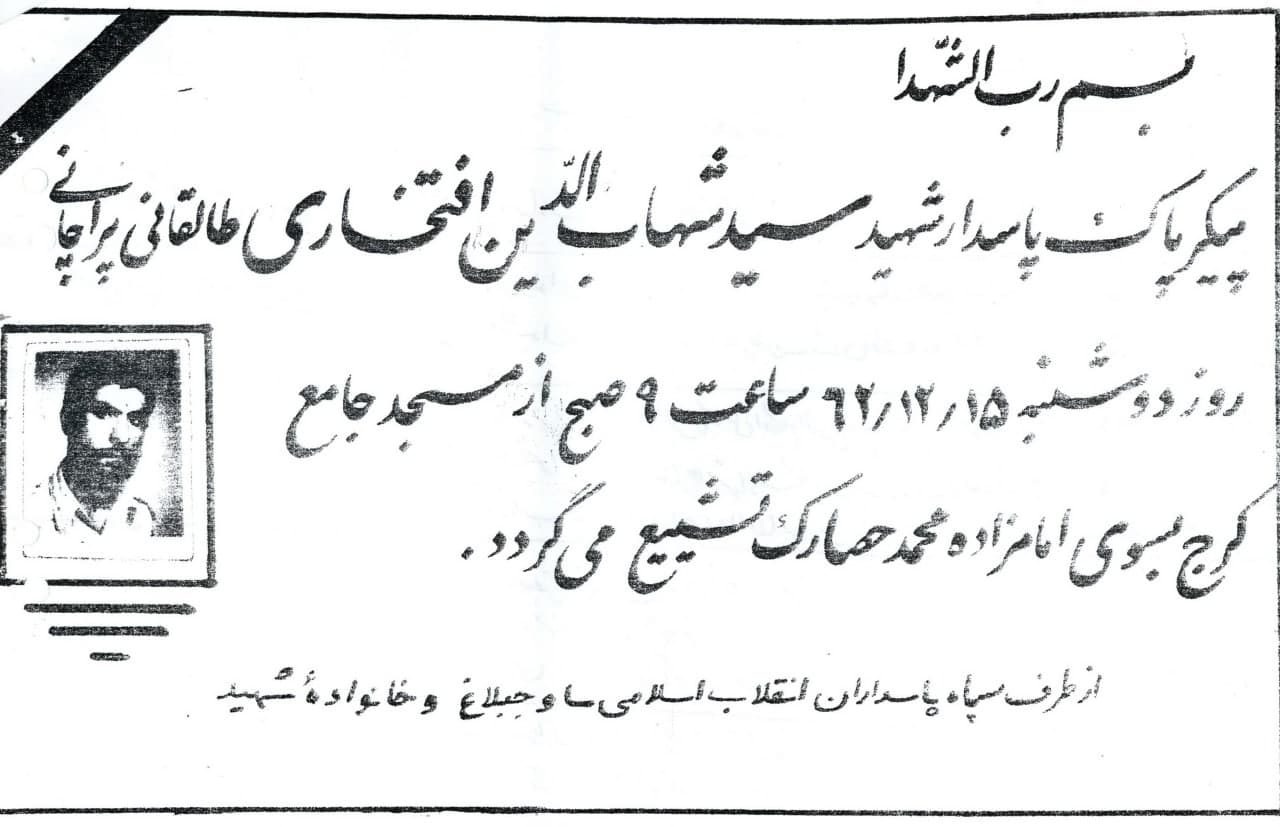 بسم رب الشّهدا
پیکر پاک پاسدار شهید سید شهاب الدّین افتخاری طالقانی پراچانی
روز دوشنبه ۶۲٫۱۲٫۱۵ ساعت ۹ صبح از مسجد جامع
کرج بسوی امامزاده محمد حصارک تشییع می گردد.
از طرف سپاه پاسداران انقلاب اسلامی ساوجبلاغ و خانوادهٔ شهید